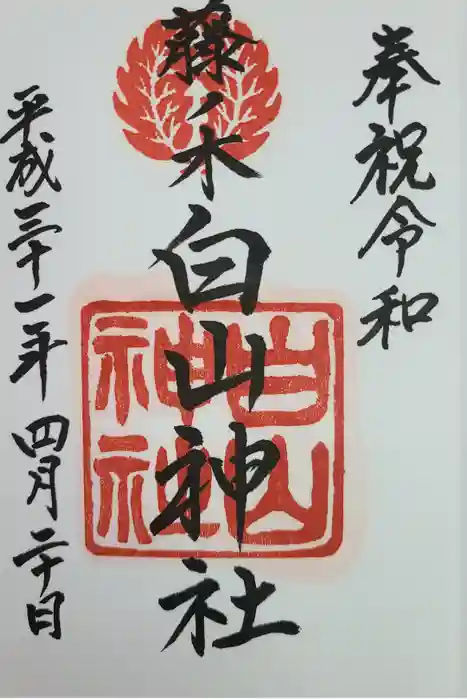 奉祝令和
藤ノ木白山神社
白山
神社
平成三十一年四月二十日